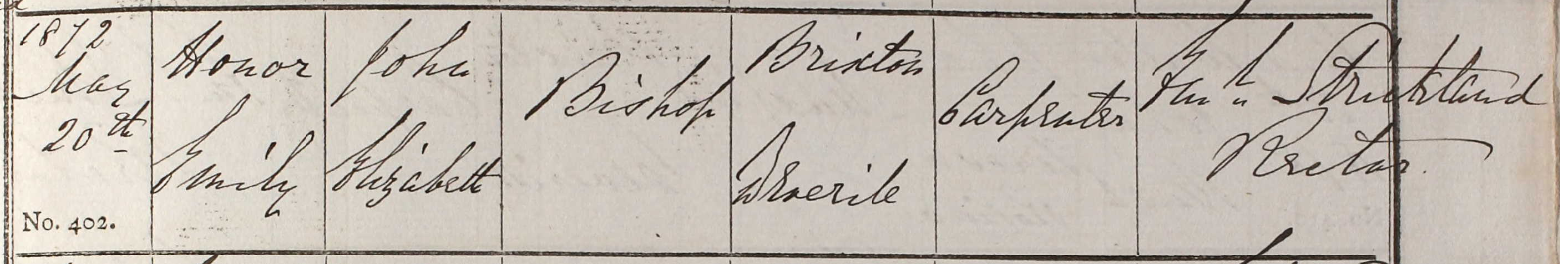 1872
May
20th
No. 402.
Honor
Emily
John
Elizabeth
Bishop
Brixton
Deverile
Carpenter
Strickland
Rector.